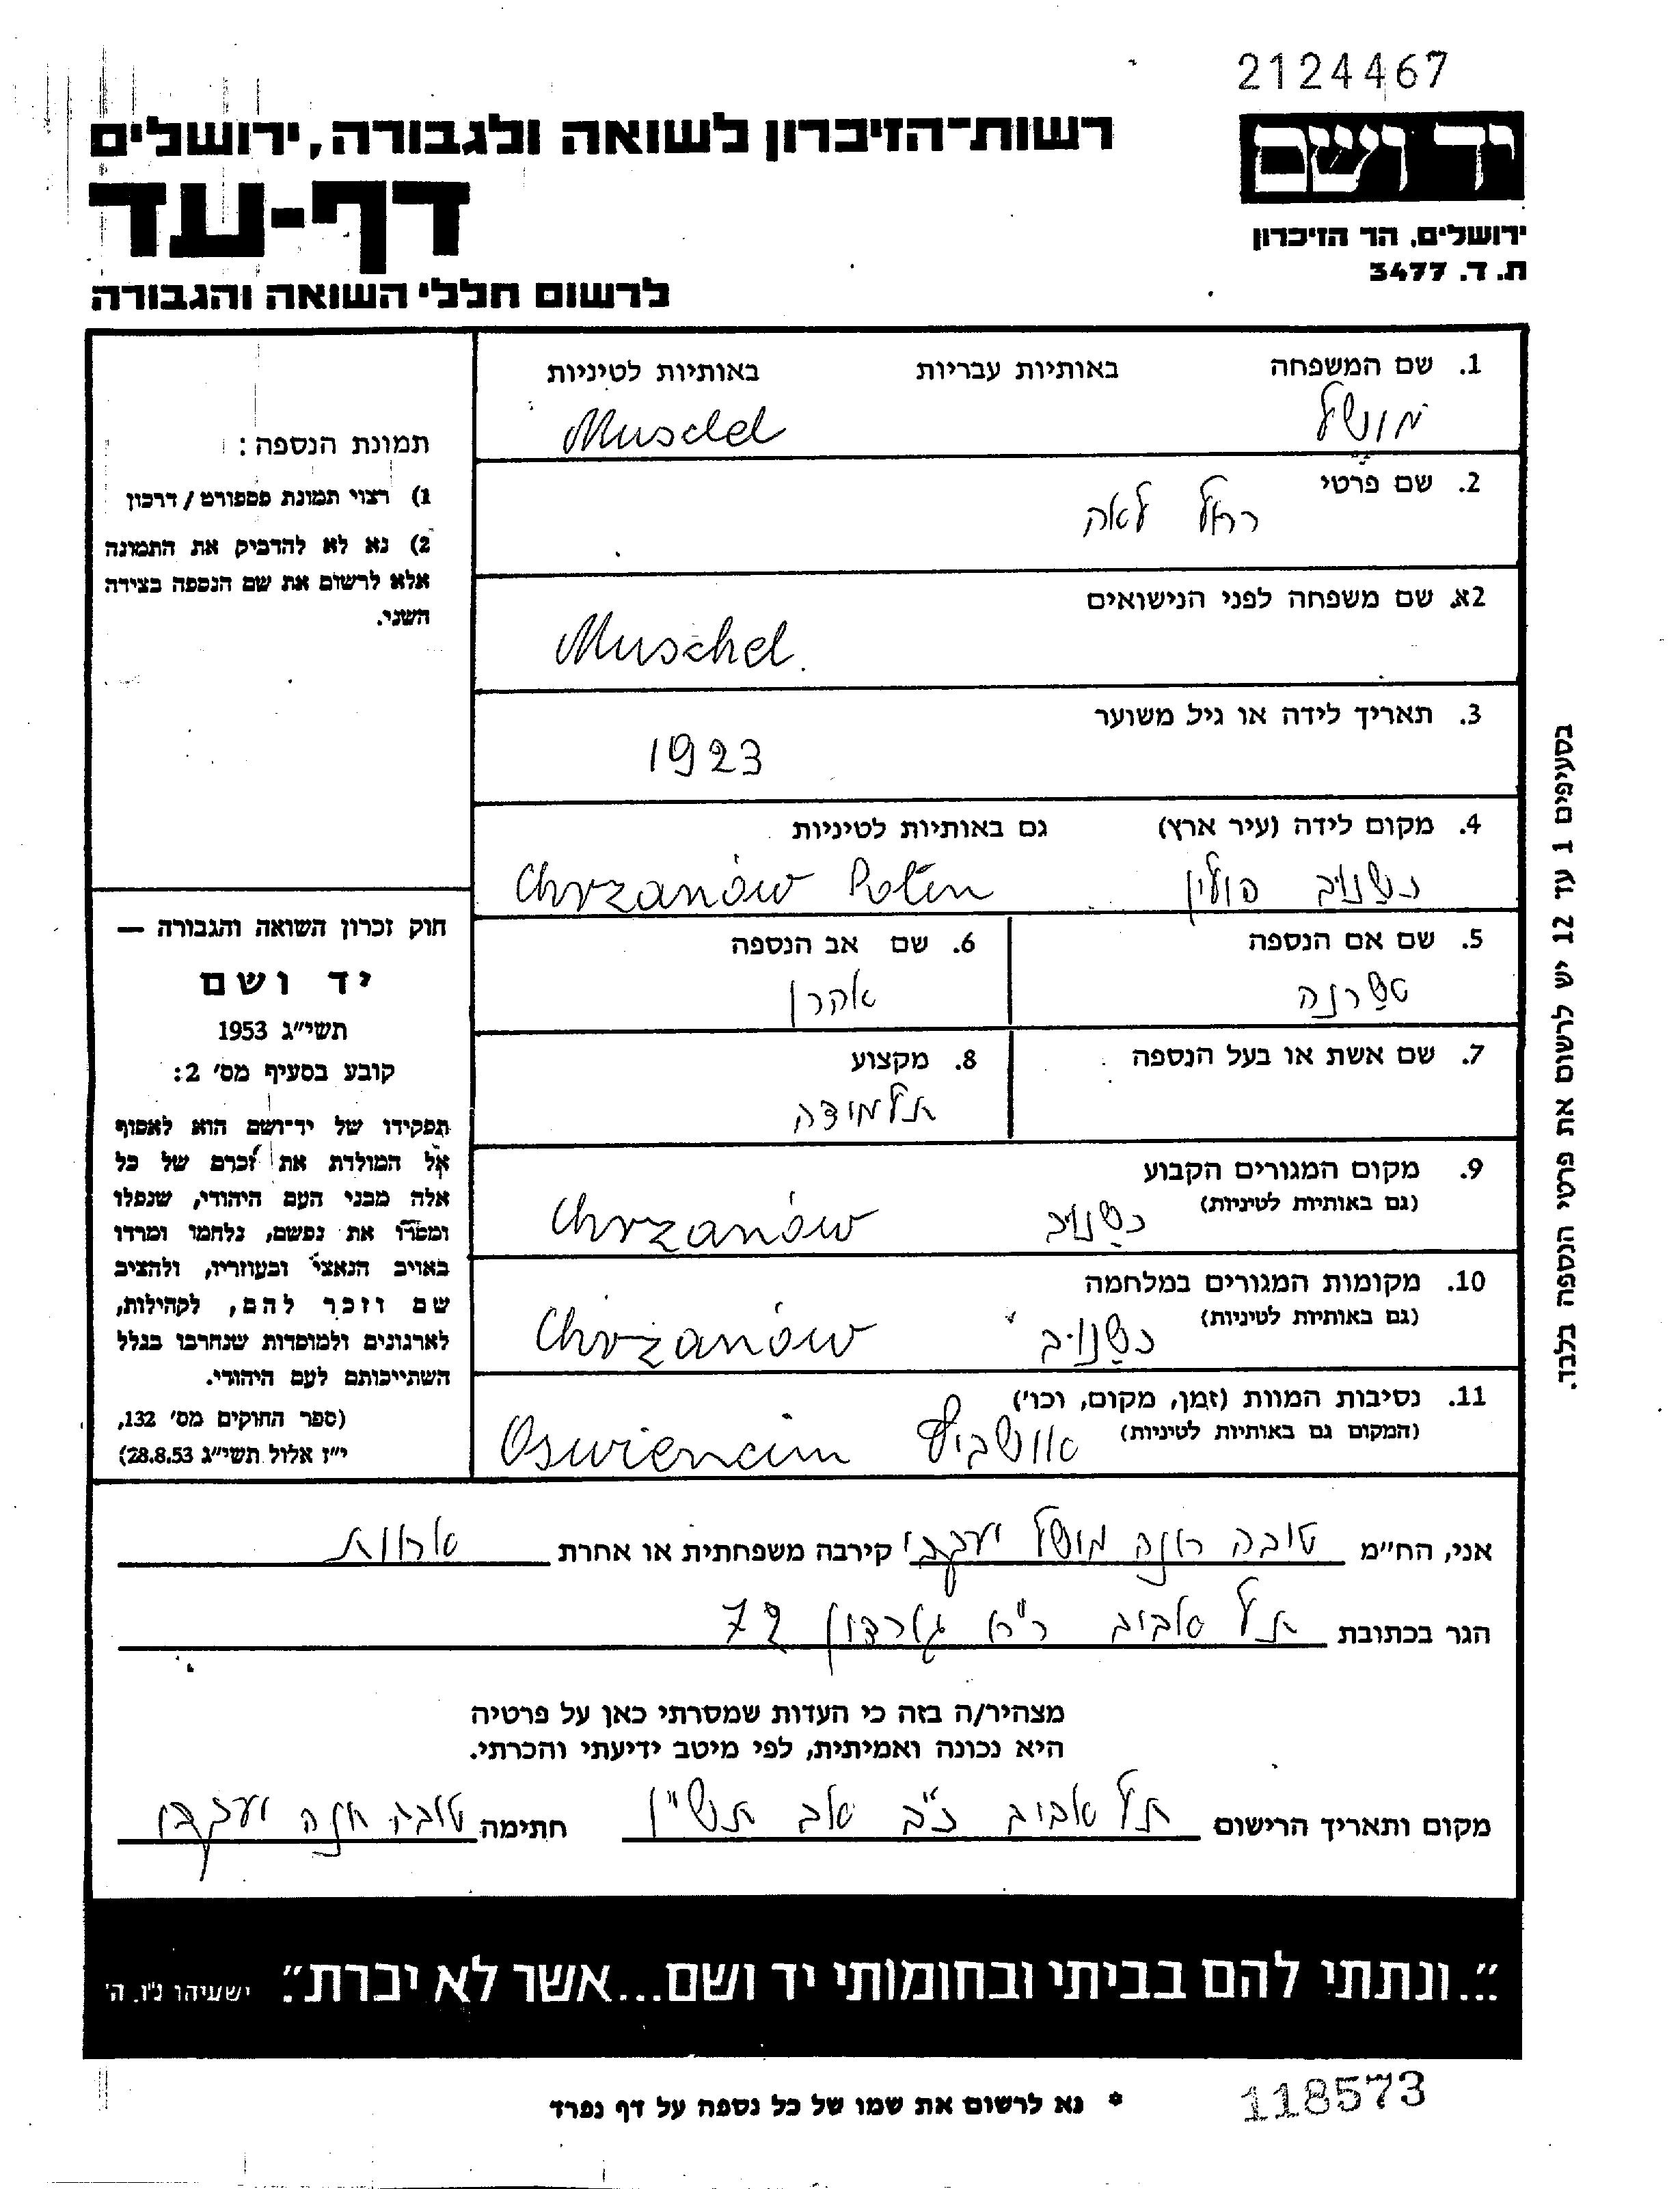 2124467
יד ושם
ירושלים, הר הזיכרון
ת. ד. 3477
רשות־הזיכרון לשואה ולגבורה, ירושלים
דף-עד
לרשום חללי השואה והגבורה
1. שם המשפחה באותיות עבריות באותיות לטיניות
מושל Muschel
2. שם פרטי
רחל לאה
2א. שם משפחה לפני הנישואים
Muschel.
3. תאריך לידה או גיל משוער
1923
4. מקום לידה (עיר ארץ) גם באותיות לטיניות
כשנוב פולין Chrzanów Polen
5. שם אם הנספה
6. שם אב הנספה
אהרן
7. שם אשת או בעל הנספה
8. מקצוע
תלמידה
9. מקום המגורים הקבוע
(גם באותיות לטיניות)
כשנוב Chrzanów
10. מקומות המגורים במלחמה
(גם באותיות לטיניות)
כשנוב Chrzanów
11. נסיבות המוות (זמן, מקום, וכו')
(המקום גם באותיות לטיניות)
אושביץ Oswiencim
תמונת הנספה:
1) רצוי תמונת פספורט / דרכון
2) נא לא להדביק את התמונה
אלא לרשום את שם הנספה בצידה
השני.
חוק זכרון השואה והגבורה —
יד ושם
תשי״ג 1953
קובע בסעיף מס' 2:
תפקידו של יד־ושם הוא לאסוף
אל המולדת את זכרם של כל
אלה מבני העם היהודי, שנפלו
ומסרו את נפשם, נלחמו ומרדו
באויב הנאצי ובעוזריו, ולהציב
שם וזכר להם, לקהילות,
לארגונים ולמוסדות שנחרבו בגלל
השתייכותם לעם היהודי.
(ספר החוקים מס' 132,
י״ז אלול תשי״ג 28.8.53)
בסעיפים 1 עד 12 יש לרשום את פרטי הנספה בלבד.
אני, הח״מ טובה חנה מושל יעקבי קירבה משפחתית או אחרת אחות
הגר בכתובת תל אביב גורדון 72
מצהיר/ה בזה כי העדות שמסרתי כאן על פרטיה
היא נכונה ואמיתית, לפי מיטב ידיעתי והכרתי.
מקום ותאריך הרישום תל אביב כ"ב אב תש"ן חתימה טובה חנה יעקבי
״...ונתתי להם בביתי ובחומותי יד ושם...אשר לא יכרת״. ישעיהו נ״ו, ה'
* נא לרשום את שמו של כל נספה על דף נפרד
118573